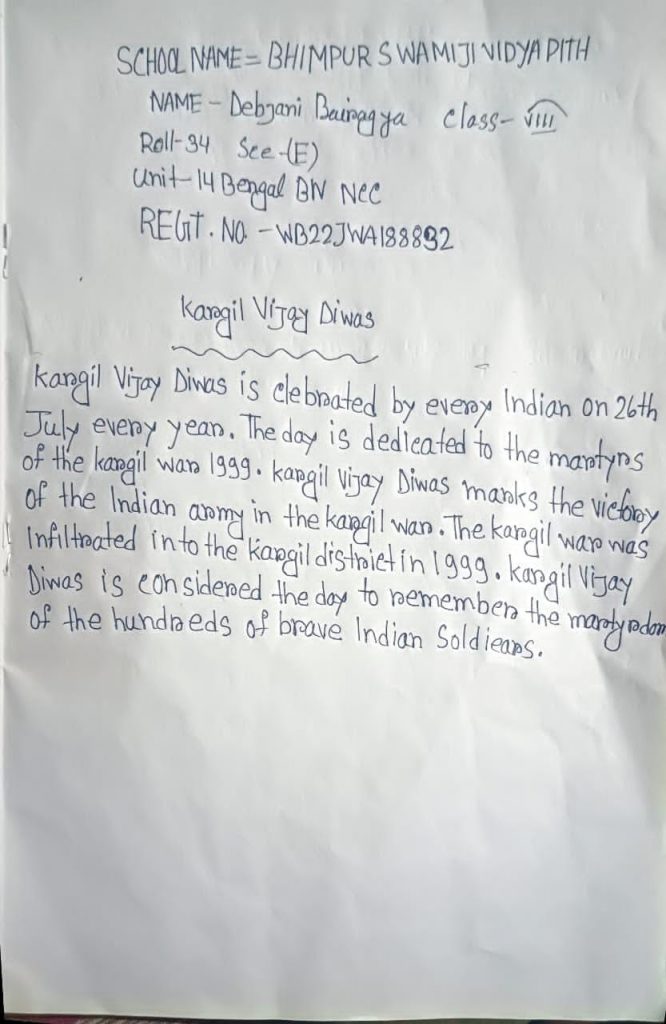 SCHOOL NAME = BHIMPUR SWAMIJI VIDYAPITH
NAME - Debjani Bairaggya Class - VIII
Roll-34 Sec-(E)
Unit-14 Bengal BN NCC
REGT. NO. - WB22JWA188892
Kargil Vijay Diwas
Kargil Vijay Diwas is clebrated by every Indian on 26th
July every year. The day is dedicated to the martyrs
of the kargil war 1999. kargil Vijay Diwas marks the victory
of the Indian army in the kargil war. The kargil war was
Infiltrated into the kargil district in 1999. kargil Vijay
Diwas is considered the day to remember the martyrdom
of the hundreds of brave Indian Soldiears.